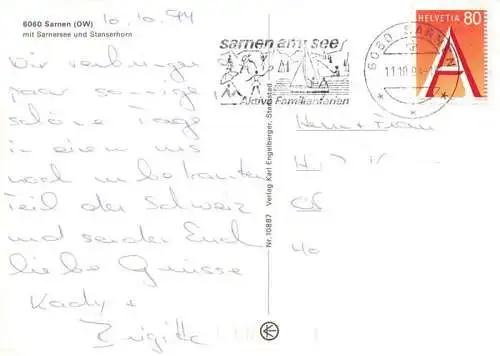 6060 Sarnen (OW)
mit Sarnersee und Stanserhorn
10.10.94
Wir verbringen
paar sonnige
schöne Tage
in einem uns
noch unbekannten
Teil der Schweiz
und senden Euch
liebe Grüsse
Kady +
Brigitte
Nr. 10887 Verlag Karl Engelberger, Stansstad
sarnen am see
Aktive Familienferien
6060 SARNEN
HELVETIA 80
A
Herrn + Frau